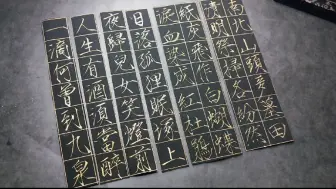 南北山頭多墓田
清明祭掃各紛然
紙灰飛作白蝴蝶
淚血染成紅杜鵑
日落狐狸眠塚上
夜歸兒女笑燈前
人生有酒須當醉
一滴何曾到九泉